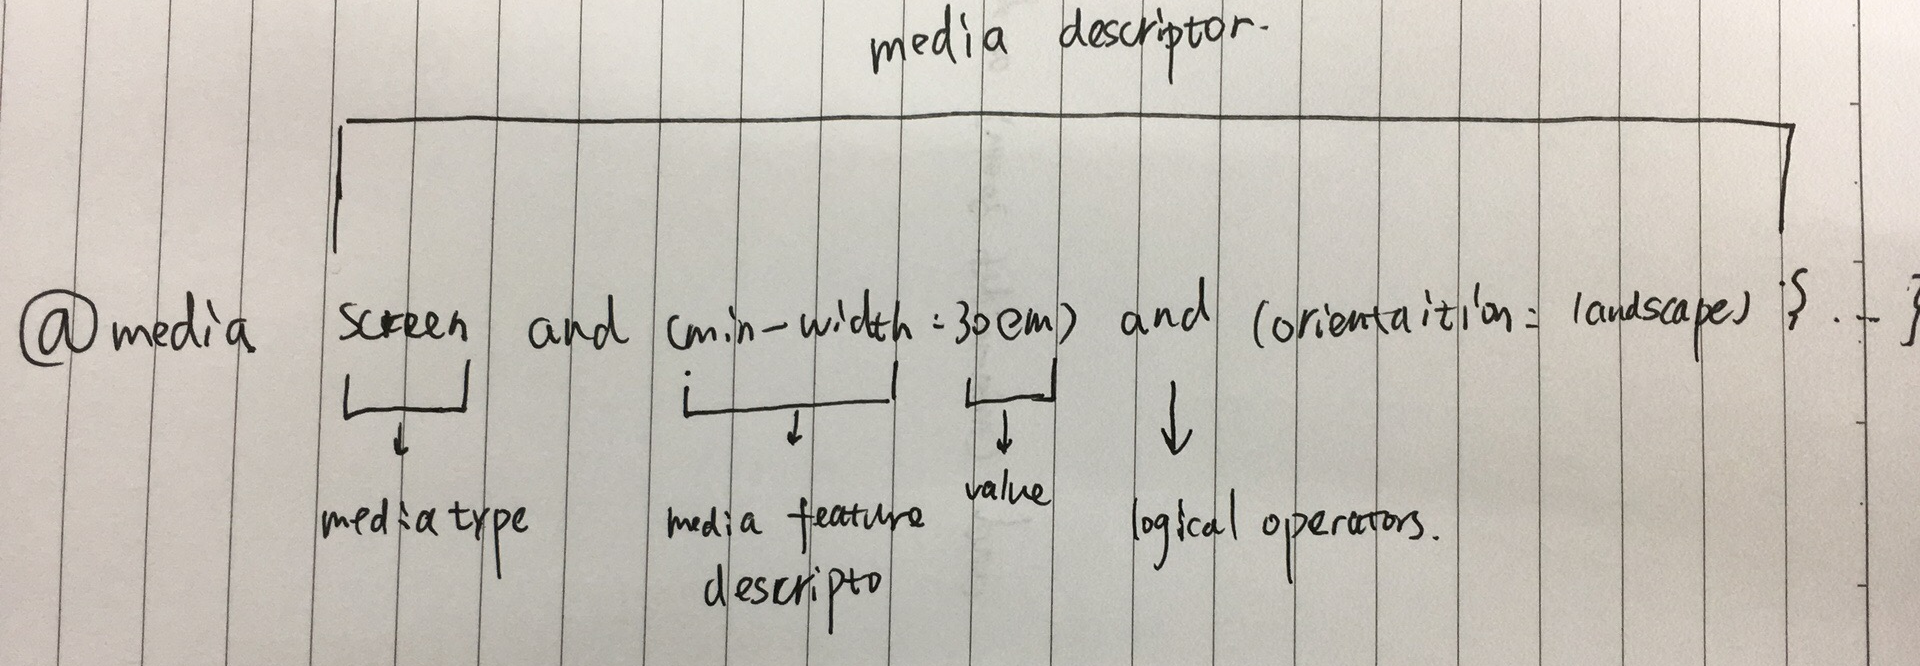 media descriptor.
@media screen and (min-width : 30em) and (orientaition : landscape) { ... }
media type
media feature
descripto
value
logical operators.